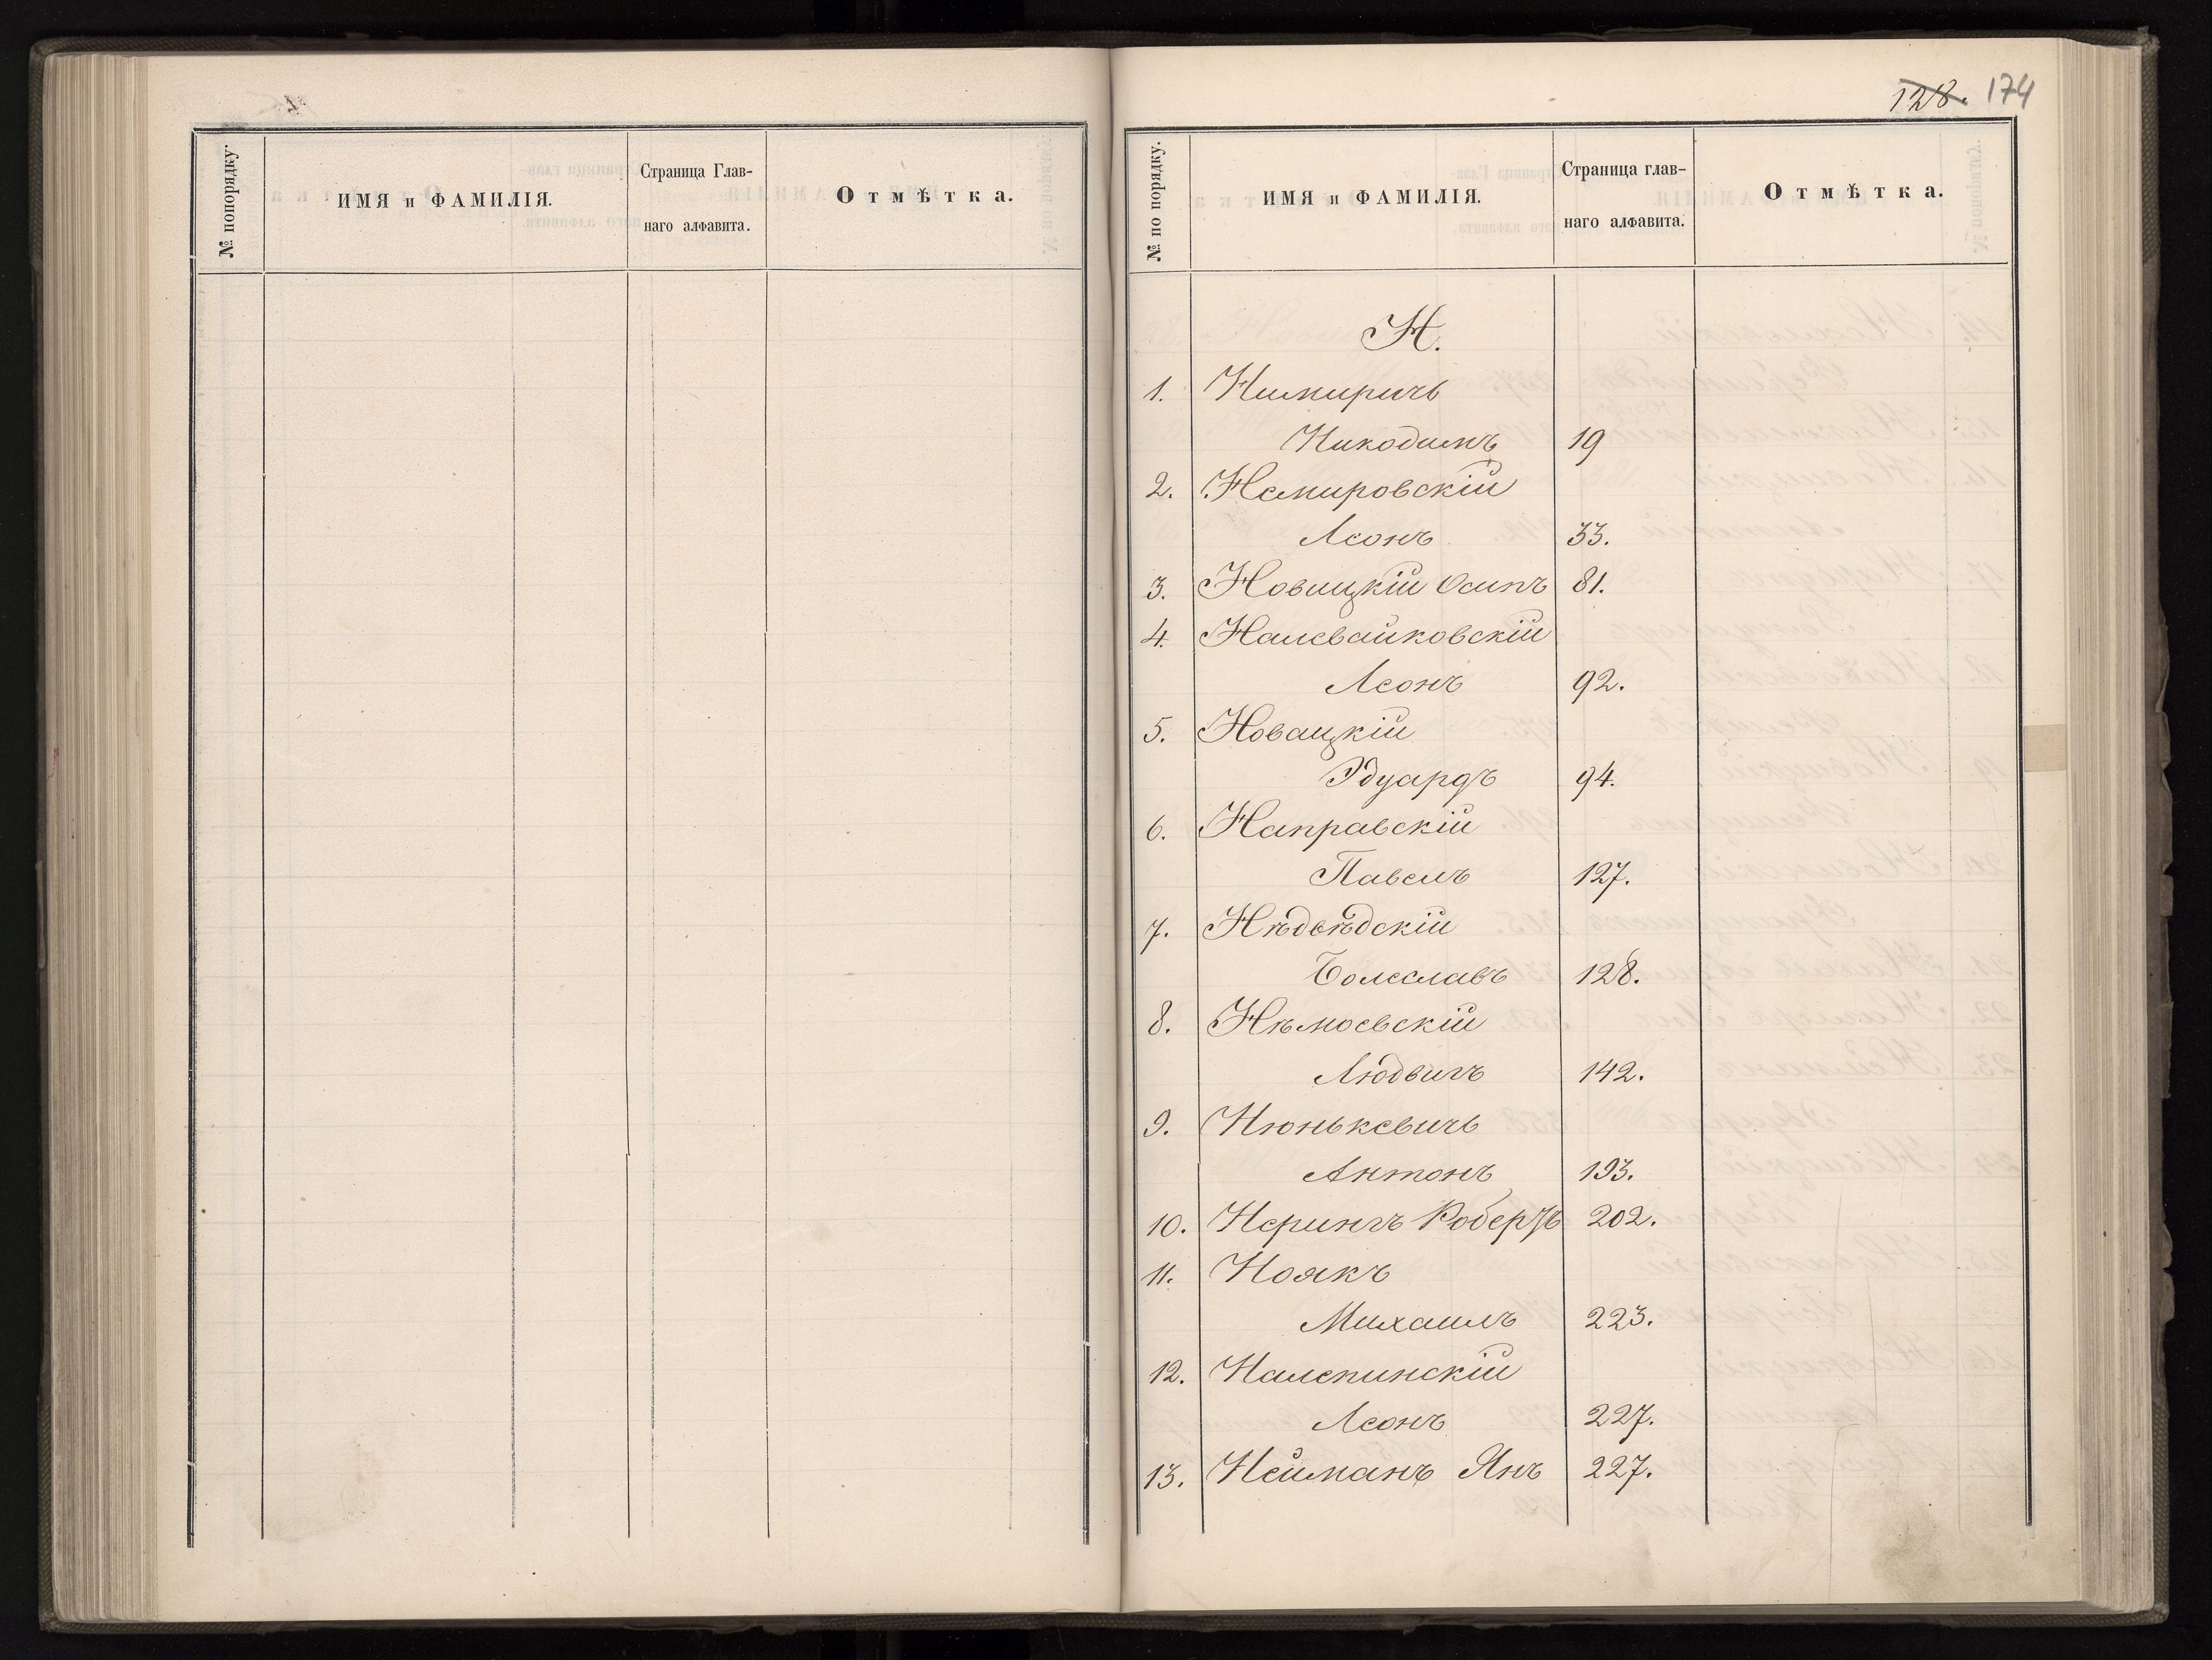 № по порядку.
ИМЯ и ФАМИЛІЯ.
Страница Глав-
наго алфавита.
Отмѣтка.
128. 174
№ по порядку.
ИМЯ и ФАМИЛІЯ.
Страница глав-
наго алфавита.
Отмѣтка.
Н.
1. Нимиричь
Никодимъ 19
2. Немировскій
Леонъ 33.
3. Новицкій Осипъ 81.
4. Налевайковскій
Леонъ 92.
5. Новацкій
Эдуардъ 94.
6. Направскій
Павелъ 127.
7. Нѣдвѣдскій
Болеславъ 128.
8. Нѣмоевскій
Людвигъ 142.
9. Нюнькевичь
Антонъ 193.
10. Нерингъ Робертъ 202.
11. Ноякъ
Михаилъ 223.
12. Налепинскій
Леонъ 227.
13. Нейманъ Янъ 227.